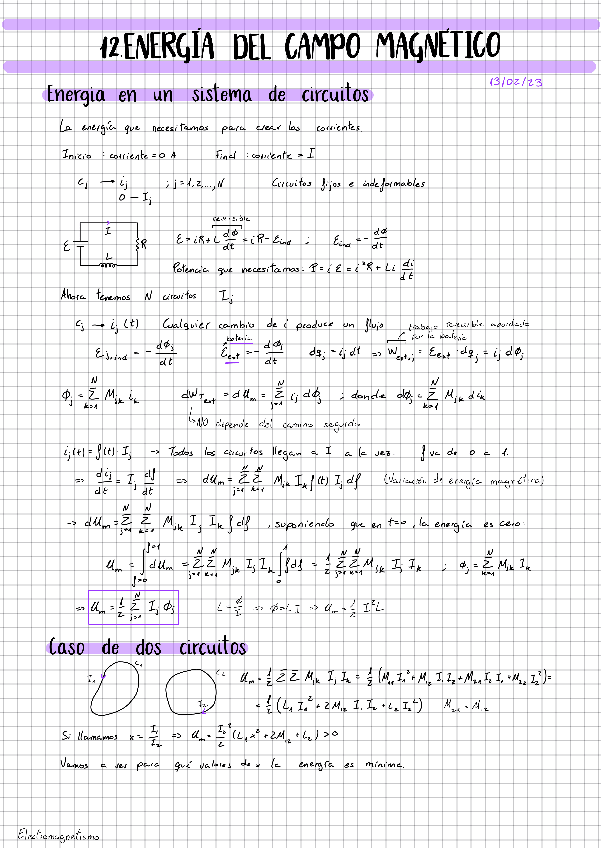 12.ENERGÍA DEL CAMPO MAGNÉTICO
13/02/23
Energia en un sistema de circuitos
La energía que necesitamos para crear las corrientes.
Inicio : corriente = 0 A Final : corriente = I
Cj → ij ; j = 1,2,...,N Circuitos fijos e indeformables
0 - Ij
ε I L R
reversible
ε = iR + L dΦ/dt = iR - εind ; εind = - dΦ/dt
Potencia que necesitamos: P = i ε = i²R + Li di/dt
Ahora tenemos N circuitos Ij
Cj → ij (t) Cualquier cambio de i produce un flujo
trabajo reversible
por la batería
εj,ind = - dΦj/dt batería εext = - dΦj/dt dqj = ij dt ⇒ Wext,j = εext · dqj = ij dΦj
Φj = Σ(k=1→N) Mjk ik dWText = dUm = Σ(j=1→N) ij dΦj ; donde dΦj = Σ(k=1→N) Mjk dik
↳ NO depende del camino seguido
ij(t) = f(t)· Ij → Todos los circuitos llegan a I a la vez. f va de 0 a 1.
⇒ dij/dt = Ij df/dt ⇒ dUm = Σ(j=1→N) Σ(k=1→N) Mjk Ik f(t) Ij df (Variación de energía magnética)
→ dUm = Σ(j=1→N) Σ(k=1→N) Mjk Ij Ik f df , suponiendo que en t=0, la energía es cero:
Um = ∫(f=0→f=1) dUm = Σ(j=1→N) Σ(k=1→N) Mjk Ij Ik ∫(0→1) f df = 1/2 Σ(j=1→N) Σ(k=1→N) Mjk Ij Ik ; Φj = Σ(k=1→N) Mjk Ik
⇒ Um = 1/2 Σ(j=1→N) Ij Φj L = Φ/I ⇒ Φ = L·I ⇒ Um = 1/2 I²L
Caso de dos circuitos
I1 C1 C2 I2
Um = 1/2 Σ Σ Mjk Ij Ik = 1/2 (M11 I1² + M12 I1 I2 + M21 I2 I1 + M22 I2²) =
= 1/2 (L1 I1² + 2M12 I1 I2 + L2 I2²) M21 = M12
Si llamamos x = I1/I2 ⇒ Um = I2²/2 (L1 x² + 2M12 + L2) > 0
Vamos a ver para qué valores de x la energía es mínima.
Electromagnetismo